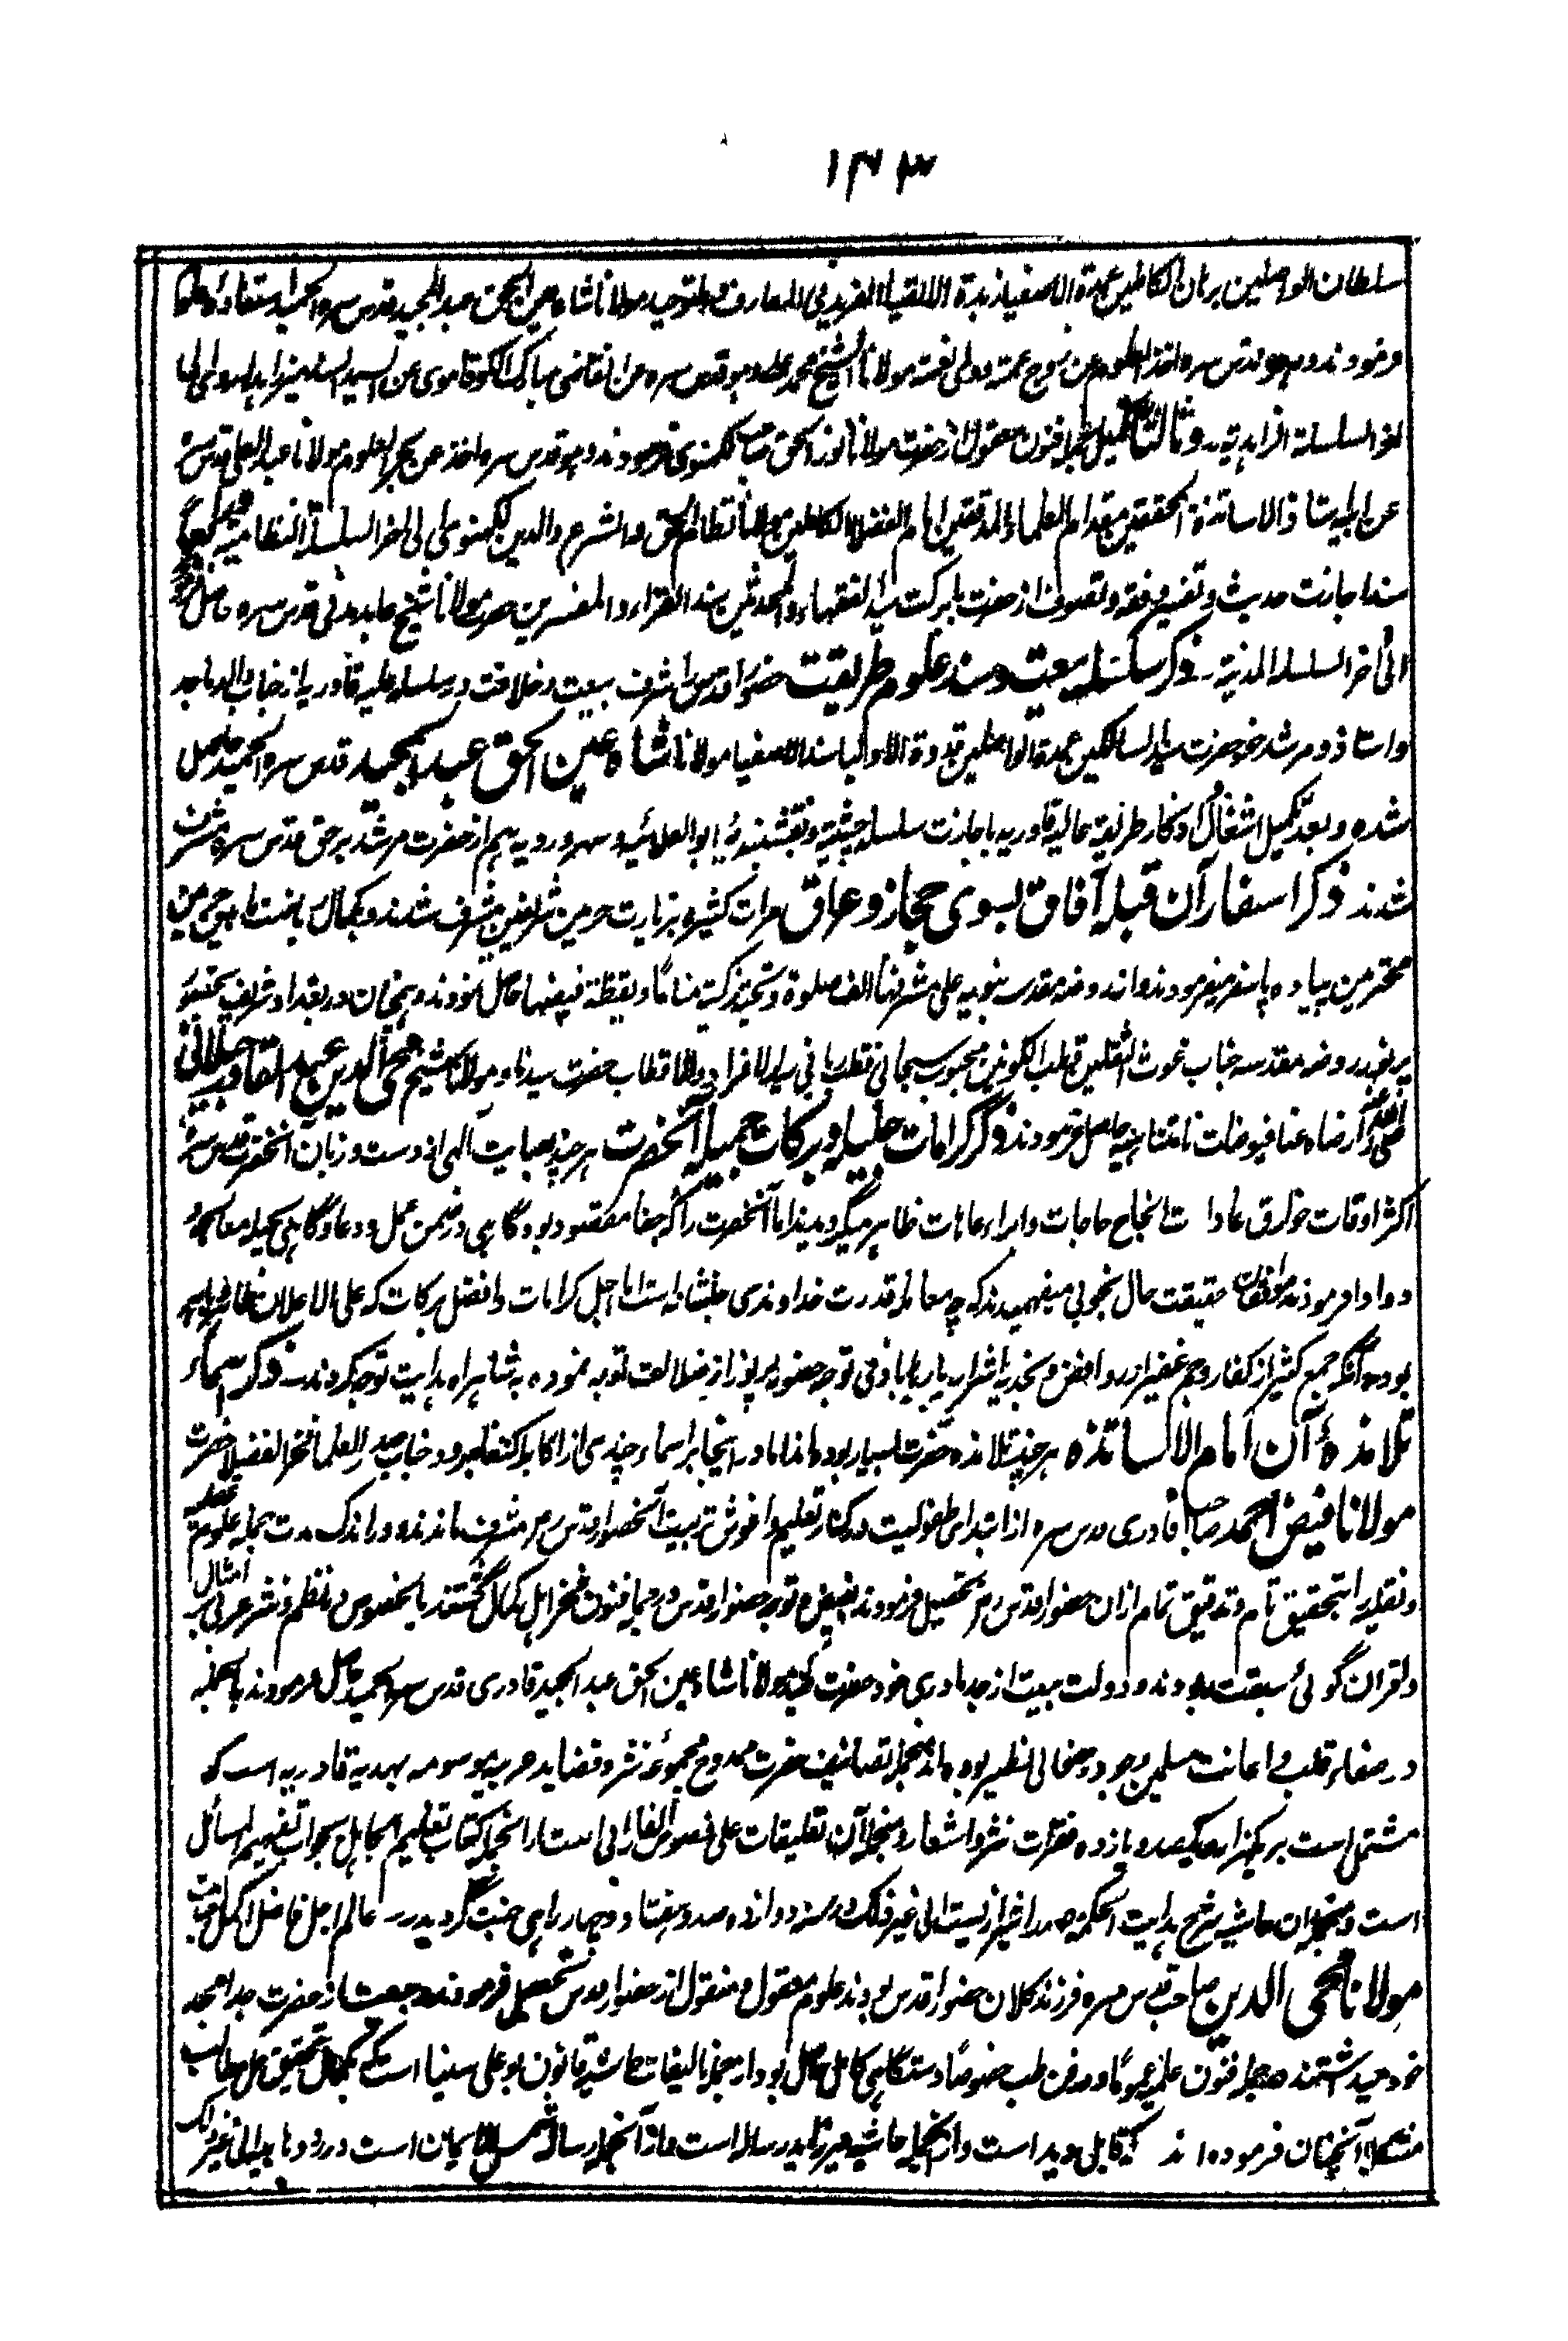 ۱۴۳
سلطان الواصلین برہان الکاملین عمدۃ الاصفیا زبدۃ الاتقیا الفرید فی المعارف والتوحید مولانا شاہ عین الحق عبدالمجید قدس سرہ الحمید استفادہ
فرمودند و ہو قدس سرہ اخذ العلوم عن زوج عمتہ وولی نعمتہ مولانا الشیخ محمد علی و ہو قدس سرہ من القاضی مبارک الکوفاموی عن السید السند میر زاہد الہروی الی
آخر السلسلة الزاہدیہ۔ و ثالثا تکمیل جملہ فنون معقول از حضرت مولانا نور الحق صاحب لکھنوی فرمودند و ہو قدس سرہ اخذ عن بحر العلوم مولانا عبد العلی قدس سرہ
عن ابیہ استاذ الاساتذۃ المحققین مقدام العلماء المدققین امام الفضلاء الکاملین مولانا نظام الحق والشرع والدین لکھنوی الی آخر السلسلة النظامیہ
سند اجازت حدیث و تفسیر و فقہ و تصوف از حضرت بابرکت سید الفقہاء والمحدثین سند القراء والمفسرین حضرت مولانا شیخ عابد مدنی قدس سرہ حاصل
الی آخر السلسلة المدنیۃ۔ ذکر سلسلہ بیعت و سند علوم طریقت حضور اقدس شرف بیعت و خلافت در سلسلہ علیہ قادریہ از جناب والد ماجد
و استاذ و مرشد خود حضرت سید السالکین عمدۃ الواصلین قدوۃ الاولیا سند الاصفیا مولانا شاہ عین الحق عبد المجید قدس سرہ الحمید حاصل
شدہ و بعد تکمیل اشغال و اذکار طریقہ عالیہ قادریہ باجازت سلسلہ چشتیہ و نقشبندیہ ابو العلائیہ و سہروردیہ ہم از حضرت مرشد برحق قدس سرہ مشرف
شدند ذکر اسفار آن قبلہ آفاق بسوی حجاز و عراق مرات کثیرہ بزیارت حرمین شریفین مشرف شدند و بکمال
محترمین پیادہ پا سفر میفرمودند و از روضہ مقدسہ نبویہ علی مشرفہا الف صلوۃ و تحیۃ زکیۃ مناما و یقظۃ فیضہا حاصل نمودند و ہمچنان در بغداد شریف
روضہ مقدسہ جناب غوث الثقلین قطب الکونین محبوب سبحانی قطب ربانی سید الافراد والاقطاب حضرت سیدنا و مولانا شیخ محی الدین عبد القادر جیلانی
رضی اللہ عنہ و ارضاہ عنا فیوضات نامتناہیہ حاصل فرمودند ذکر کرامات جلیلہ و برکات جمیلہ آنحضرت ہر چند بعنایت الٰہی از دست و زبان آنحضرت قدس سرہ
اکثر اوقات خوارق عادات انجاح حاجات و ابراء عاہات ظاہر میگردید اما آنحضرت را کہ اخفا مقصود بود گاہی در ضمن عمل و دعا و گاہی بحیلہ معالجہ
و دوا ادا فرمودند حقیقت حال بخوبی میفہمیدند کہ چہ معاملہ قدرت خداوندی جلشانہ است اما اجل کرامات و افضل برکات کہ علی الاعلان ظاہر
بود آنکہ جمع کثیر از کفار و جم غفیر از روافض و نجدیہ اشرار توجہ حضور پرنور از ضلالت توبہ نمودہ بشاہراہ ہدایت توجہ کردند۔ ذکر اسماء
تلامذۂ آن امام الاساتذہ ہر چند تلامذہ حضرت بسیار بودہ اند اما در اینجا بر اسماء چندی از اکابر اکتفا میرود جناب صدر العلما فخر الفضلا حضرت
مولانا فیض احمد صاحب قادری قدس سرہ از ابتدای طفولیت در کنار تعلیم و آغوش تربیت آنحضور اقدس مشرف ماندند و در اندک مدت جملہ علوم عقلیہ
و نقلیہ را بتحقیق تام و تدقیق تمام از آن حضور اقدس تحصیل فرمودند بفیض توجہ حضور اقدس در جملہ فنون فخر اہل کمال گشتند بالخصوص در نظم و نثر عربی بر امثال
و اقران گوئی سبقت ربودند و دولت بیعت از جد مادری خود حضرت مولانا شاہ عین الحق عبد المجید قادری قدس سرہ الحمید حاصل فرمودند بالجملہ
در صفاء قلب و اعانت مسلمین وجود خالی النظیر بودہ اند از جملہ تصانیف حضرت ممدوح مجموعہ نثر و قصاید عربیہ موسومہ بہدیہ قادریہ است کہ
مشتمل است بر یکہزار و یکصد و یازدہ فقرات نثر و اشعار و منجملہ آن تعلیقات علی فصوص الفارابی است از انجملہ کتاب تعلیم الجاہل بجواب تفہیم المسائل
است و منجملہ آن حاشیہ شرح ہدایت الحکمة صدرا شیرازیست الی غیر ذلک در سنہ دوازدہ صد و ہفتاد و چہار راہی جنت گردیدند۔ عالم اجل فاضل اکمل
مولانا محی الدین صاحب قدس سرہ فرزند کلان حضور اقدس بودند علوم معقول و منقول از حضور اقدس تحصیل فرمودند و بیعت از حضرت جد امجد
خود میداشتند در جملہ فنون علمیہ عموما و در فن طب خصوصا دستگاہی کامل حاصل بود از جملہ تالیفات حاشیہ قانون بو علی سینا است کہ بکمال تحقیق حل مطالب
مشکلہ آنچنان فرمودہ اند کہ قابل دید است و از انجملہ حاشیہ میر زاہد رسالہ است و از آنجملہ رسالہ شمس الایمان است در رد وہابیہ الی غیر ذلک